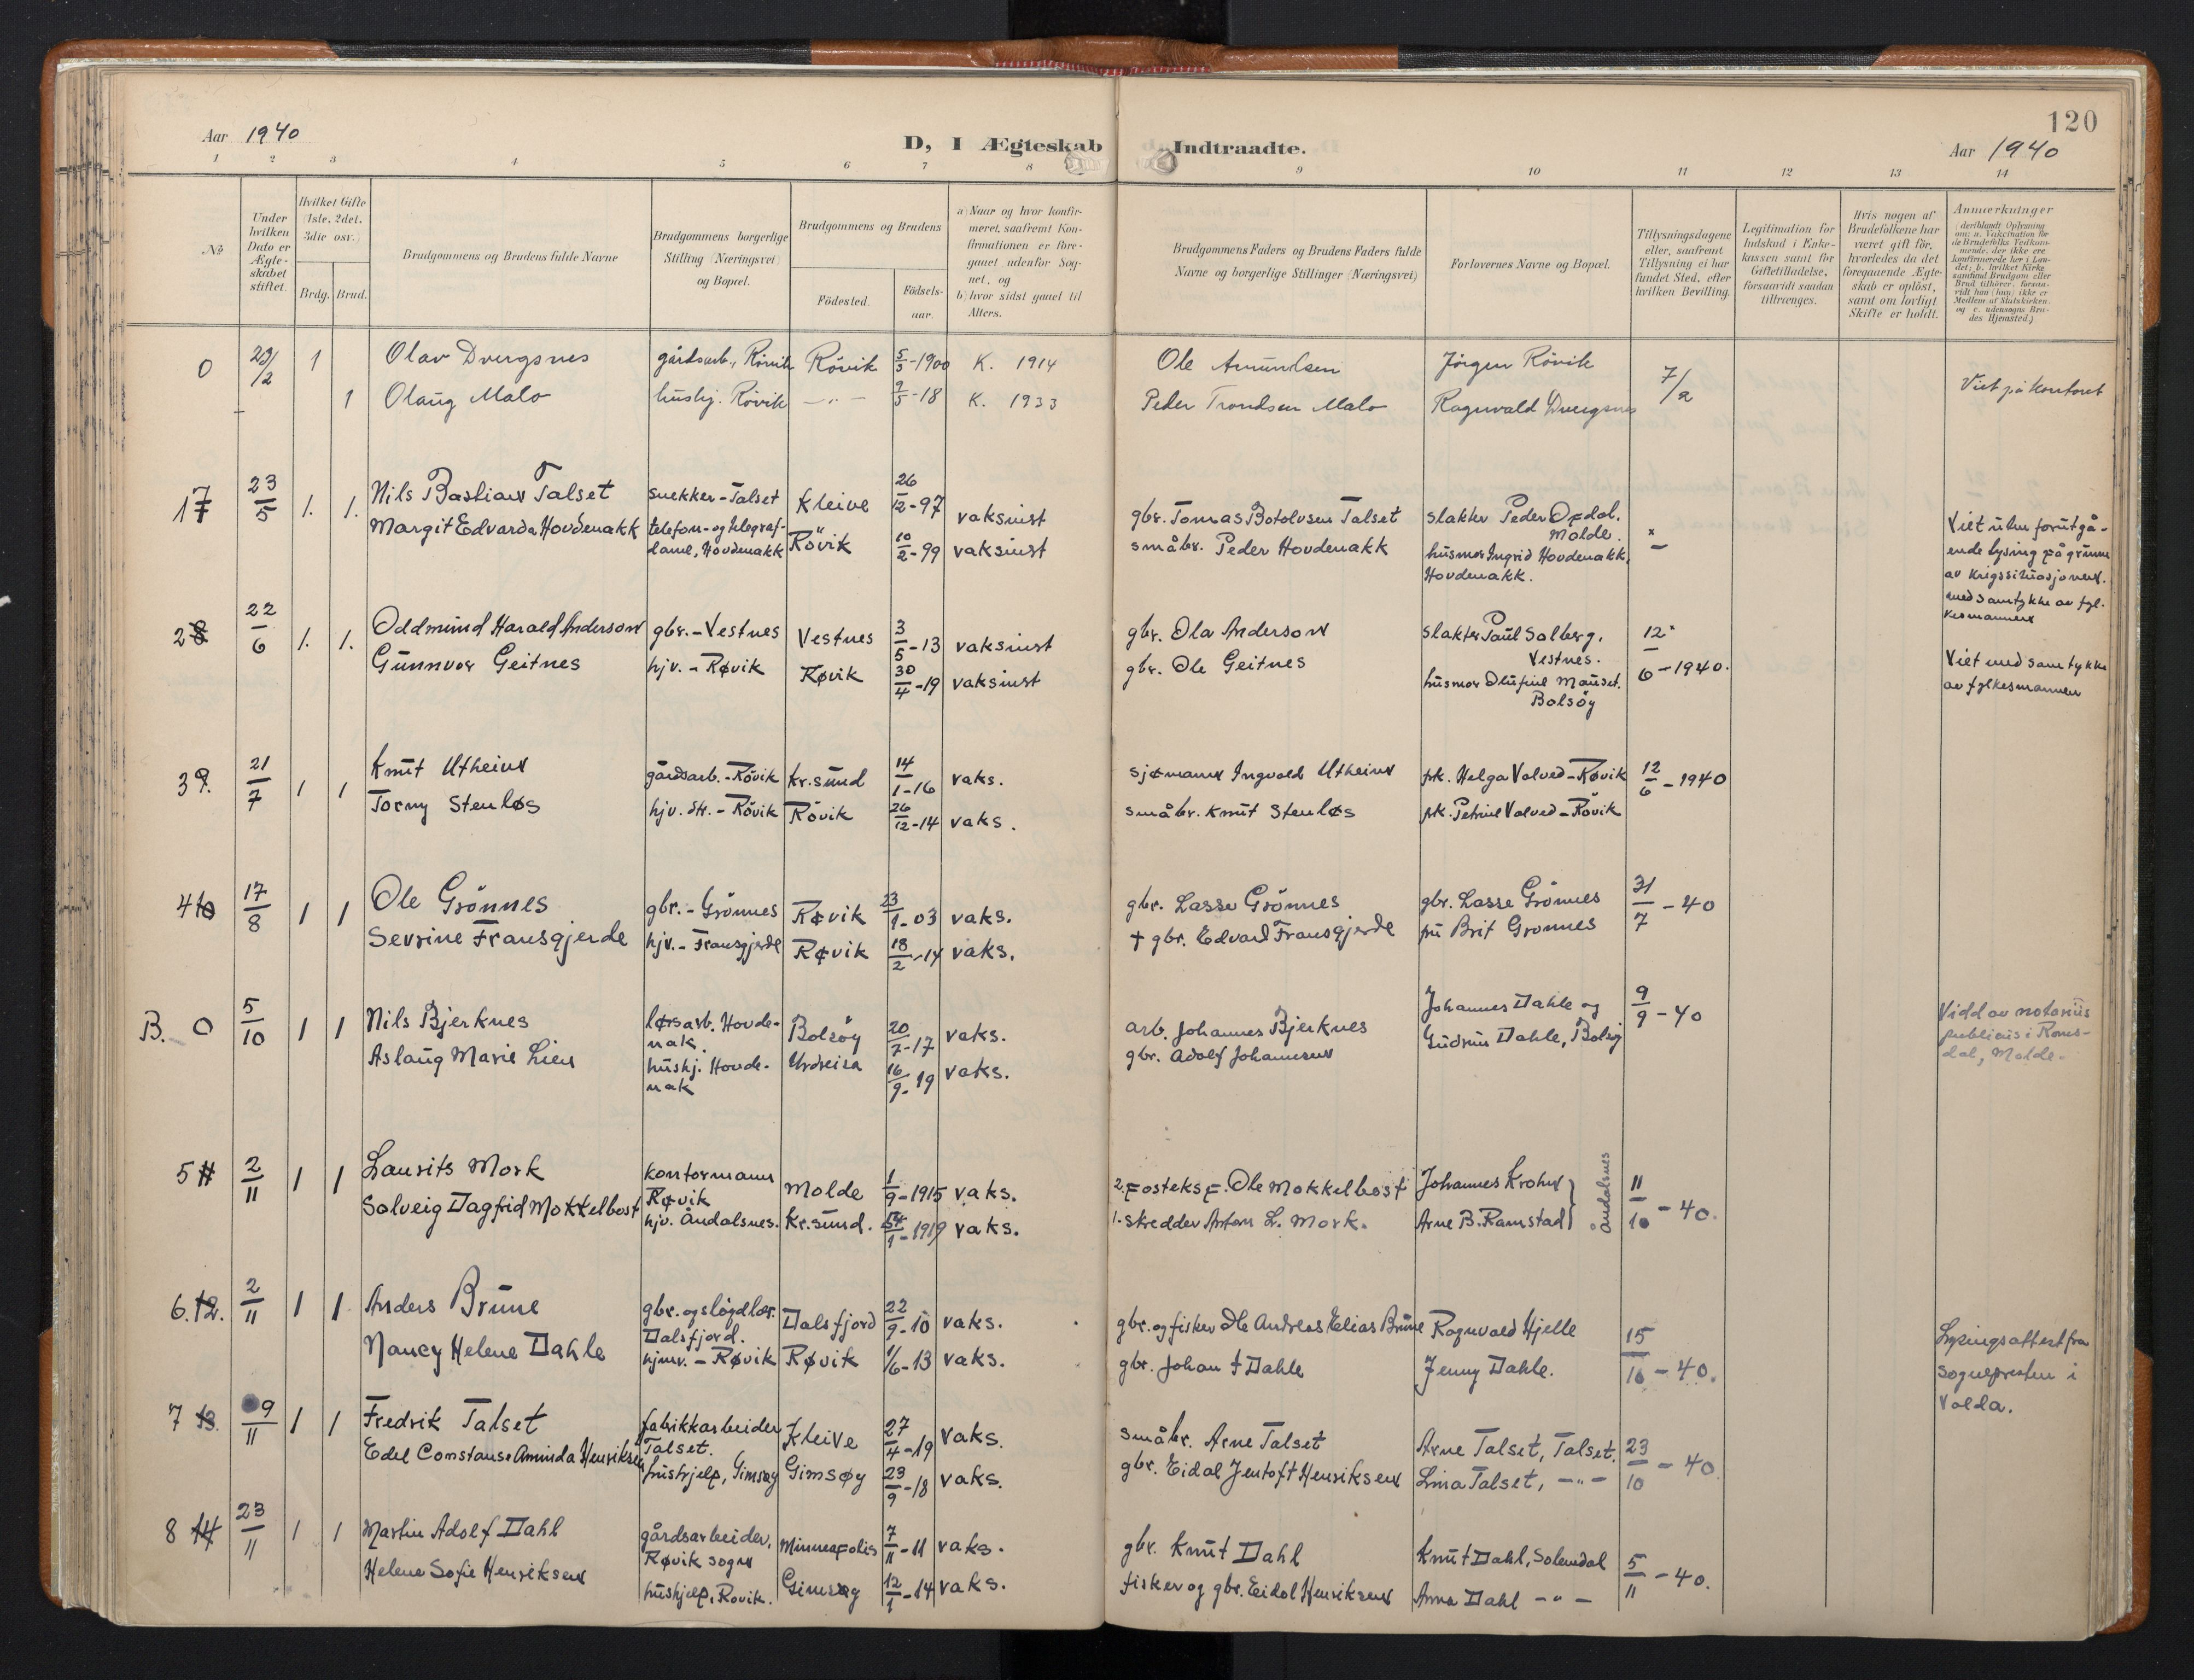 120
Aar 1940
D, I Ægteskab Indtraadte.
Aar 1940
1 2 3 4 5 6 7 8 9 10 11 12 13 14
№
Under hvilken Dato er Ægteskabet stiftet.
Hvilket Gifte (1ste, 2det, 3die osv.)
Brdg. Brud.
Brudgommens og Brudens fulde Navne
Brudgommens borgerlige Stilling (Næringsvei) og Bopæl.
Brudgommens og Brudens
Födested.
Födselsaar.
a) Naar og hvor konfirmeret, saafremt Konfirmationen er foregaaet udenfor Sognet, og
b) hvor sidst gaaet til Alters.
Brudgommens Faders og Brudens Faders fulde Navne og borgerlige Stillinger (Næringsvei)
Forlovernes Navne og Bopæl.
Tillysningsdagene eller, saafremt Tillysning ei har fundet Sted, efter hvilken Bevilling.
Legitimation for Indskud i Enkekassen samt for Giftetilladelse, forsaavidt saadan tiltrænges.
Hvis nogen af Brudefolkene har været gift för, hvorledes da det foregaaende Ægteskab er oplöst, samt om lovligt Skifte er holdt.
Anmerkninger
(deriblandt Oplysning om: a. Vakcination for de Brudefolks Vedkommende, der ikke ere konfirmerede her i Landet; b. hvilket Kirkesamfund Brudgom eller Brud tilhörer, forsaavidt han (hun) ikke er Medlem af Statskirken, og c. udensogns Brudes Hjemsted.)
0 23/2 1 Olav Dvergsnes gårdsarb., Rövik Rövik 5/3-1900 K. 1914 Ole Amundsen Jörgen Rövik 7/2 Viet på kontoret
1 Olaug Malo hushj. Rövik -"- 9/5-18 K. 1933 Peder Trondsen Malo Ragnvald Dvergsnes
1 7 23/5 1. 1. Nils Bastian Talset snekker-Talset Kleive 26/12-97 vaksinst gbr. Tomas Botolvsen Talset slakter Peder Opdal. Molde. Viet uten forutgå-
Margit Edvarda Hovdenakk telefon- og telegraf- Rövik 10/2-99 vaksinst småbr. Peder Hovdenakk husmor Ingrid Hovdenakk, ende lysing på grunn
dame, Hovdenakk Hovdenakk. av krigssituasjonen.
med samtykke av fyl-
kesmannen
2 8 22/6 1. 1. Oddmund Harald Anderson gbr.-Vestnes Vestnes 3/5-13 vaksinst gbr. Ola Anderson slakter Paul Solberg. Vestnes. 12/6-1940.
Gunnvor Geitnes hjv.-Røvik Røvik 30/4-19 vaksinst gbr. Ole Geitnes husmor Olufine Mauset. Bolsöy Viet med samtykke
av fylkesmannen
3 9. 21/7 1 1 Knut Utheim gårdsarb.-Rövik Kr.sund 14/1-16 vaks. sjømann Ingvald Utheim frk. Helga Valved-Røvik 12/6-1940
Torny Stenløs hjv. str.-Rövik Rövik 26/12-14 vaks. småbr. Knut Stenløs frk. Petrine Valved-Rövik
4 10 17/8 1 1 Ole Grönnes gbr.-Grönnes Røvik 23/1-03 vaks. gbr. Lasse Grönnes gbr. Lasse Grönnes 31/7-40
Sevrine Fransgjerde hjv.-Fransgjerde Røvik 18/2-14 vaks. † gbr. Edvard Fransgjerde fru Brit Gronnes
B. 0 5/10 1 1 Nils Bjerknes lørsarb. Hovde- nak. Bolsöy 20/7-17 vaks. arb. Johannes Bjerknes Johannes Dahle og 9/9-40 Vidd av notarius
Aslaug Marie Lien hushj. Hovde- nak Undreisa 16/9-19 vaks. gbr. Adolf Johannesen Gudrun Dahle, Bolsöy publicus i Roms-
dal, Molde.
5 11 2/11 1 1 Laurits Mork kontormann Røvik Molde 1/9-1915 vaks. 2. posteksp. Ole Mokkelbost Johannes Krohn } Åndalsnes 11/10-40.
Solveig Dagfrid Mokkelbost hjv. Åndalsnes. Kr.sund. 1-1919 vaks. 1. skredder Anton L. Mork. Arne B. Ramstad
6. 12. 2/11 1 1 Anders Brune gbr. og sløgdlær. Dalsfjord. Dalsfjord 22/9-10 vaks. gbr. og fisker Ole Andreas Elias Brune Ragnvald Hjelle 15/10-40. Lysingsattest fra
Nancy Helene Dahle hjmv.-Røvik Røvik 1/6-13 vaks. gbr. Johan I Dahle Jenny Dahle. sognepresten i
Volda.
7 13. 9/11 1 1 Fredrik Talset fabrikkarbeider Talset. Kleive 27/4-19 vaks. småbr. Arne Talset Arne Talset, Talset. 23/10-40.
Edel Constanse Aminda Henriksen hushjelp, Gimsøy Gimsøy 23/9-18 vaks. gbr. Eidal Jentoft Henriksen Lina Talset, -"-
8 14 23/11 1 1 Martin Adolf Dahl gårdsarbeider, Røvik sogn Minneapolis 7/11-11 vaks. gbr. Knut Dahl Knut Dahl, Solemdal 5/11-40.
Helene Sofie Henriksen hushjelp, Røvik. Gimsøy 12/1-14 vaks. fisker og gbr. Eidal Henriksen Anna Dahl -"-